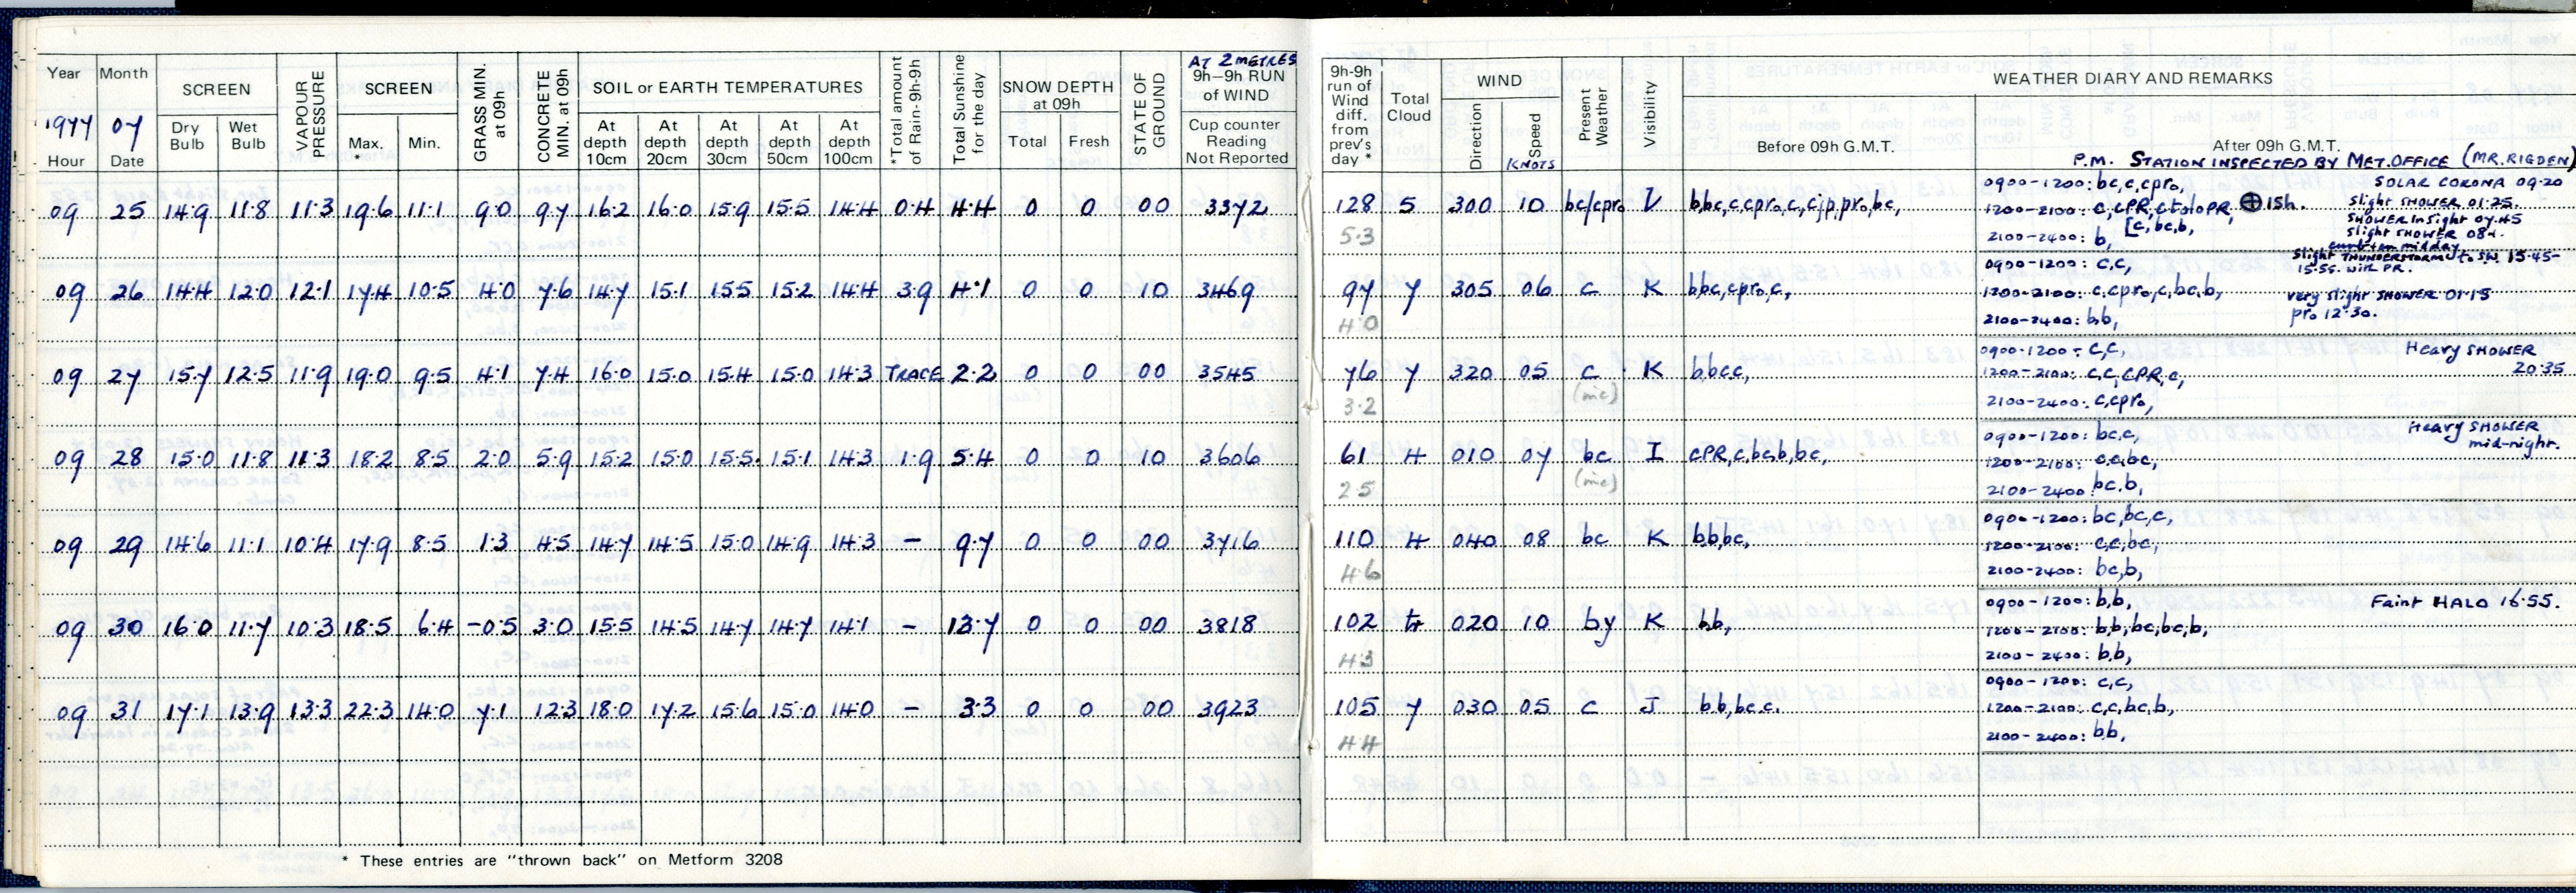 Year Month SCREEN VAPOUR PRESSURE SCREEN GRASS MIN. at 09h CONCRETE MIN. at 09h SOIL or EARTH TEMPERATURES *Total amount of Rain 9h-9h Total Sunshine for the day SNOW DEPTH at 09h STATE OF GROUND AT 2 METRES 9h–9h RUN of WIND
1977 07 Dry Bulb Wet Bulb Max. * Min. At depth 10cm At depth 20cm At depth 30cm At depth 50cm At depth 100cm Total Fresh Cup counter Reading Not Reported
Hour Date
09 25 14.9 11.8 11.3 19.6 11.1 9.0 9.7 16.2 16.0 15.9 15.5 14.4 0.4 4.4 0 0 00 3372
09 26 14.4 12.0 12.1 17.4 10.5 4.0 7.6 14.7 15.1 15.5 15.2 14.4 3.9 4.1 0 0 10 3469
09 27 15.7 12.5 11.9 19.0 9.5 4.1 7.4 16.0 15.0 15.4 15.0 14.3 TRACE 2.2 0 0 00 3545
09 28 15.0 11.8 11.3 18.2 8.5 2.0 5.9 15.2 15.0 15.5. 15.1 14.3 1.9 5.4 0 0 10 3606
09 29 14.6 11.1 10.4 17.9 8.5 1.3 4.5 14.7 14.5 15.0 14.9 14.3 – 9.7 0 0 00 3716
09 30 16.0 11.7 10.3 18.5 6.4 -0.5 3.0 15.5 14.5 14.7 14.7 14.1 – 13.7 0 0 00 3818
09 31 17.1 13.9 13.3 22.3 14.0 7.1 12.3 18.0 17.2 15.6 15.0 14.0 – 3.3 0 0 00 3923
* These entries are "thrown back" on Metform 3208
9h-9h run of Wind diff. from prev's day * Total Cloud WIND Present Weather Visibility WEATHER DIARY AND REMARKS
Direction Speed KNOTS Before 09h G.M.T. After 09h G.M.T.
P.M. STATION INSPECTED BY MET. OFFICE (MR. RIGDEN)
128 5 300 10 bc/cpro V b,bc,c,cpro,c,cjp,pro,bc,
5.3
0900-1200: bc,c,cpro, SOLAR CORONA 09.20
1200-2100: c,cPR, ctlolopR, ⊕ 15h. slight SHOWER 01.25.
[c, bc,b, SHOWER in sight 07.45
2100-2400: b, slight SHOWER 08
midday
97 7 305 06 c K b,bc,cpro,c,
4.0
slight THUNDERSTORM to SW. 15.45-
0900-1200: c,c, 15.55. with PR.
1200-2100: c,cpro,c,bc,b, very slight SHOWER 01.15
2100-2400: b,b, pro 12.30.
76 7 320 05 c K b,b,c,c,
3.2 (mc)
0900-1200: c,c, Heavy SHOWER
1200-2100: c,c,cPR,c, 20.35
2100-2400: c,cpro,
61 4 010 07 bc I cPR,c,bc,b,bc,
2.5 (mc)
0900-1200: bc,c, Heavy SHOWER
1200-2100: c,c,bc, mid-night.
2100-2400: bc,b,
110 4 040 08 bc K b,b,bc,
4.6
0900-1200: bc,bc,c,
1200-2100: c,c,bc,
2100-2400: bc,b,
102 tr 020 10 by K b,b,
4.3
0900-1200: b,b, Faint HALO 16.55.
1200-2100: b,b,bc,bc,b,
2100-2400: b,b,
105 7 030 05 c J b,b,bc,c.
4.4
0900-1200: c,c,
1200-2100: c,c,bc,b,
2100-2400: b,b,